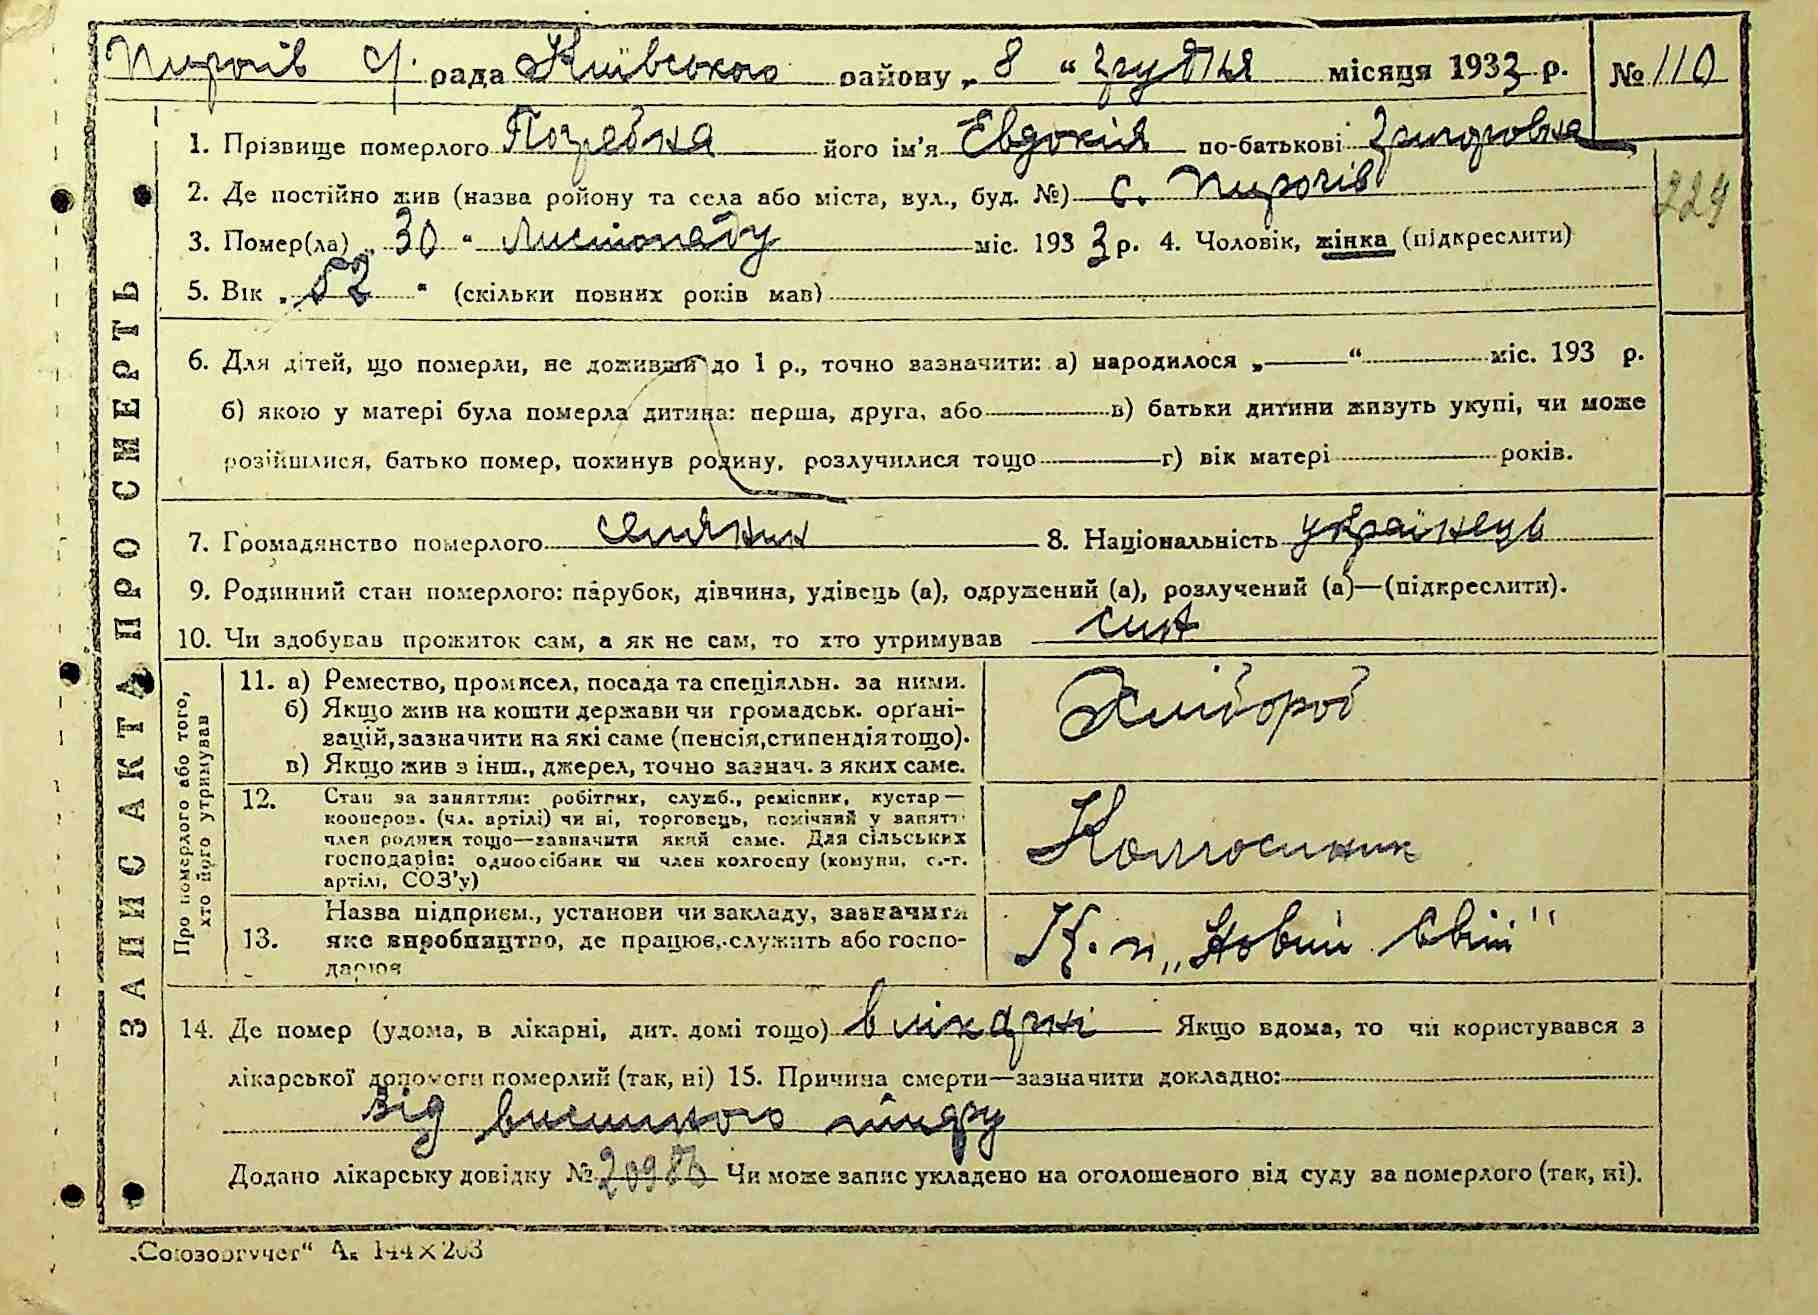 Пирогів с/. рада Київського району „ 8 “ грудня місяця 1933 р. № 110
1. Прізвище померлого Погребна його ім'я Евдокія по-батькові
2. Де постійно жив (назва району та села або міста, вул., буд. №) с. Пирогів
224
3. Помер(ла) „ 30 “ Листопаду міс. 1933 р. 4. Чоловік, жінка (підкреслити)
5. Вік „ 52 “ (скільки повних років мав)
6. Для дітей, що померли, не доживши до 1 р., точно зазначити: а) народилося „ “ міс. 193 р.
б) якою у матері була померла дитина: перша, друга, або в) батьки дитини живуть укупі, чи може
розійшлися, батько помер, покинув родину, розлучилися тощо г) вік матері років.
7. Громадянство померлого 8. Національність українець
9. Родинний стан померлого: парубок, дівчина, удівець (а), одружений (а), розлучений (а)—(підкреслити).
10. Чи здобував прожиток сам, а як не сам, то хто утримував
ЗАПИС АКТА ПРО СМЕРТЬ
Про померлого або того,
хто його утримував
11. а) Ремество, промисел, посада та спеціяльн. за ними.
б) Якщо жив на кошти держави чи громадськ. органі-
зацій, зазначити на які саме (пенсія, стипендія тощо).
в) Якщо жив з інш., джерел, точно зазнач. з яких саме.
Хлібороб
12. Стан за заняттям: робітник, служб., ремісник, кустар—
кооперов. (чл. артілі) чи ні, торговець, помічний у занятті
член родини тощо—зазначити який саме. Для сільських
господарів: одноосібник чи член колгоспу (комуни, с.-г.
артілі, СОЗ'у)
Колгоспник
13. Назва підприєм., установи чи закладу, зазначити
яке виробництво, де працює, служить або госпо-
дарює
К. п „Новий Світ"
14. Де помер (удома, в лікарні, дит. домі тощо) в лікарні Якщо вдома, то чи користувався з
лікарської допомоги померлий (так, ні) 15. Причина смерти—зазначити докладно:
від висипного тифу
Додано лікарську довідку № Чи може запис укладено на оголошеного від суду за померлого (так, ні).
„Союзоргучет“ А₅ 144×203